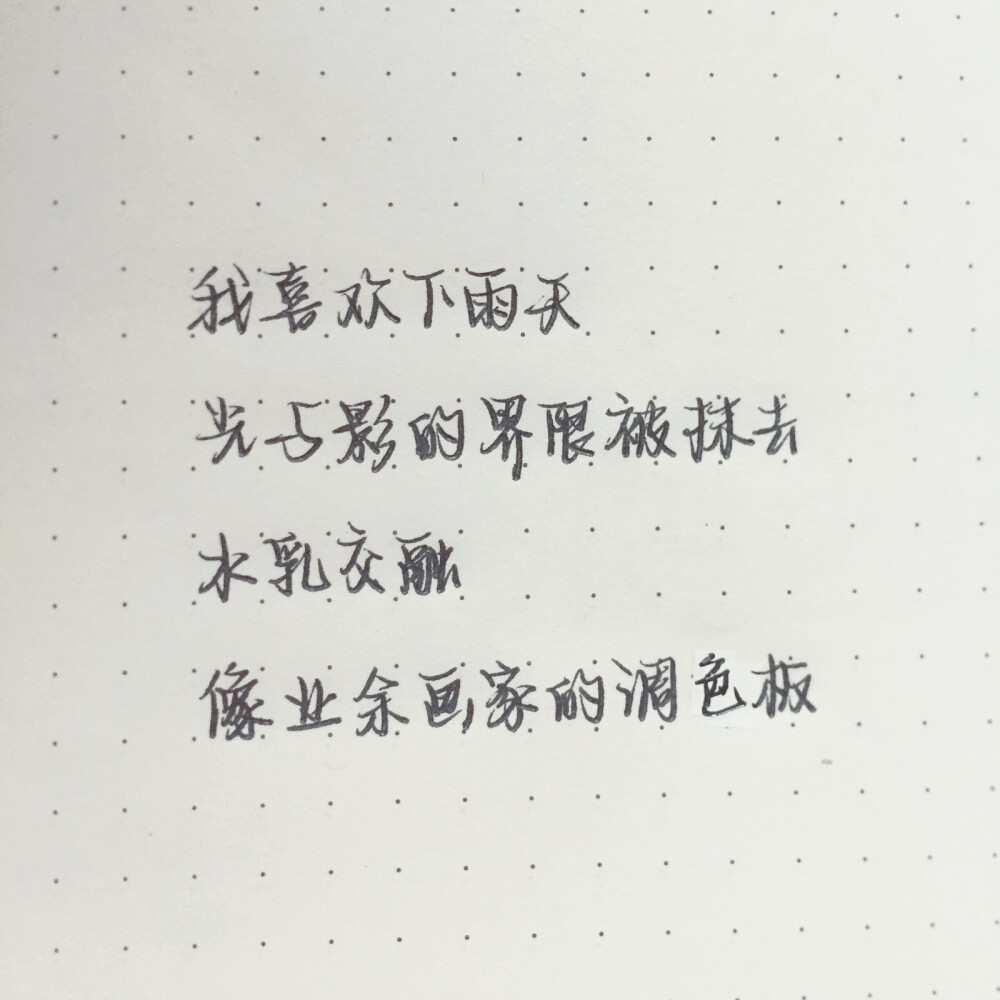 我喜欢下雨天
光与影的界限被抹去
水乳交融
像业余画家的调色板